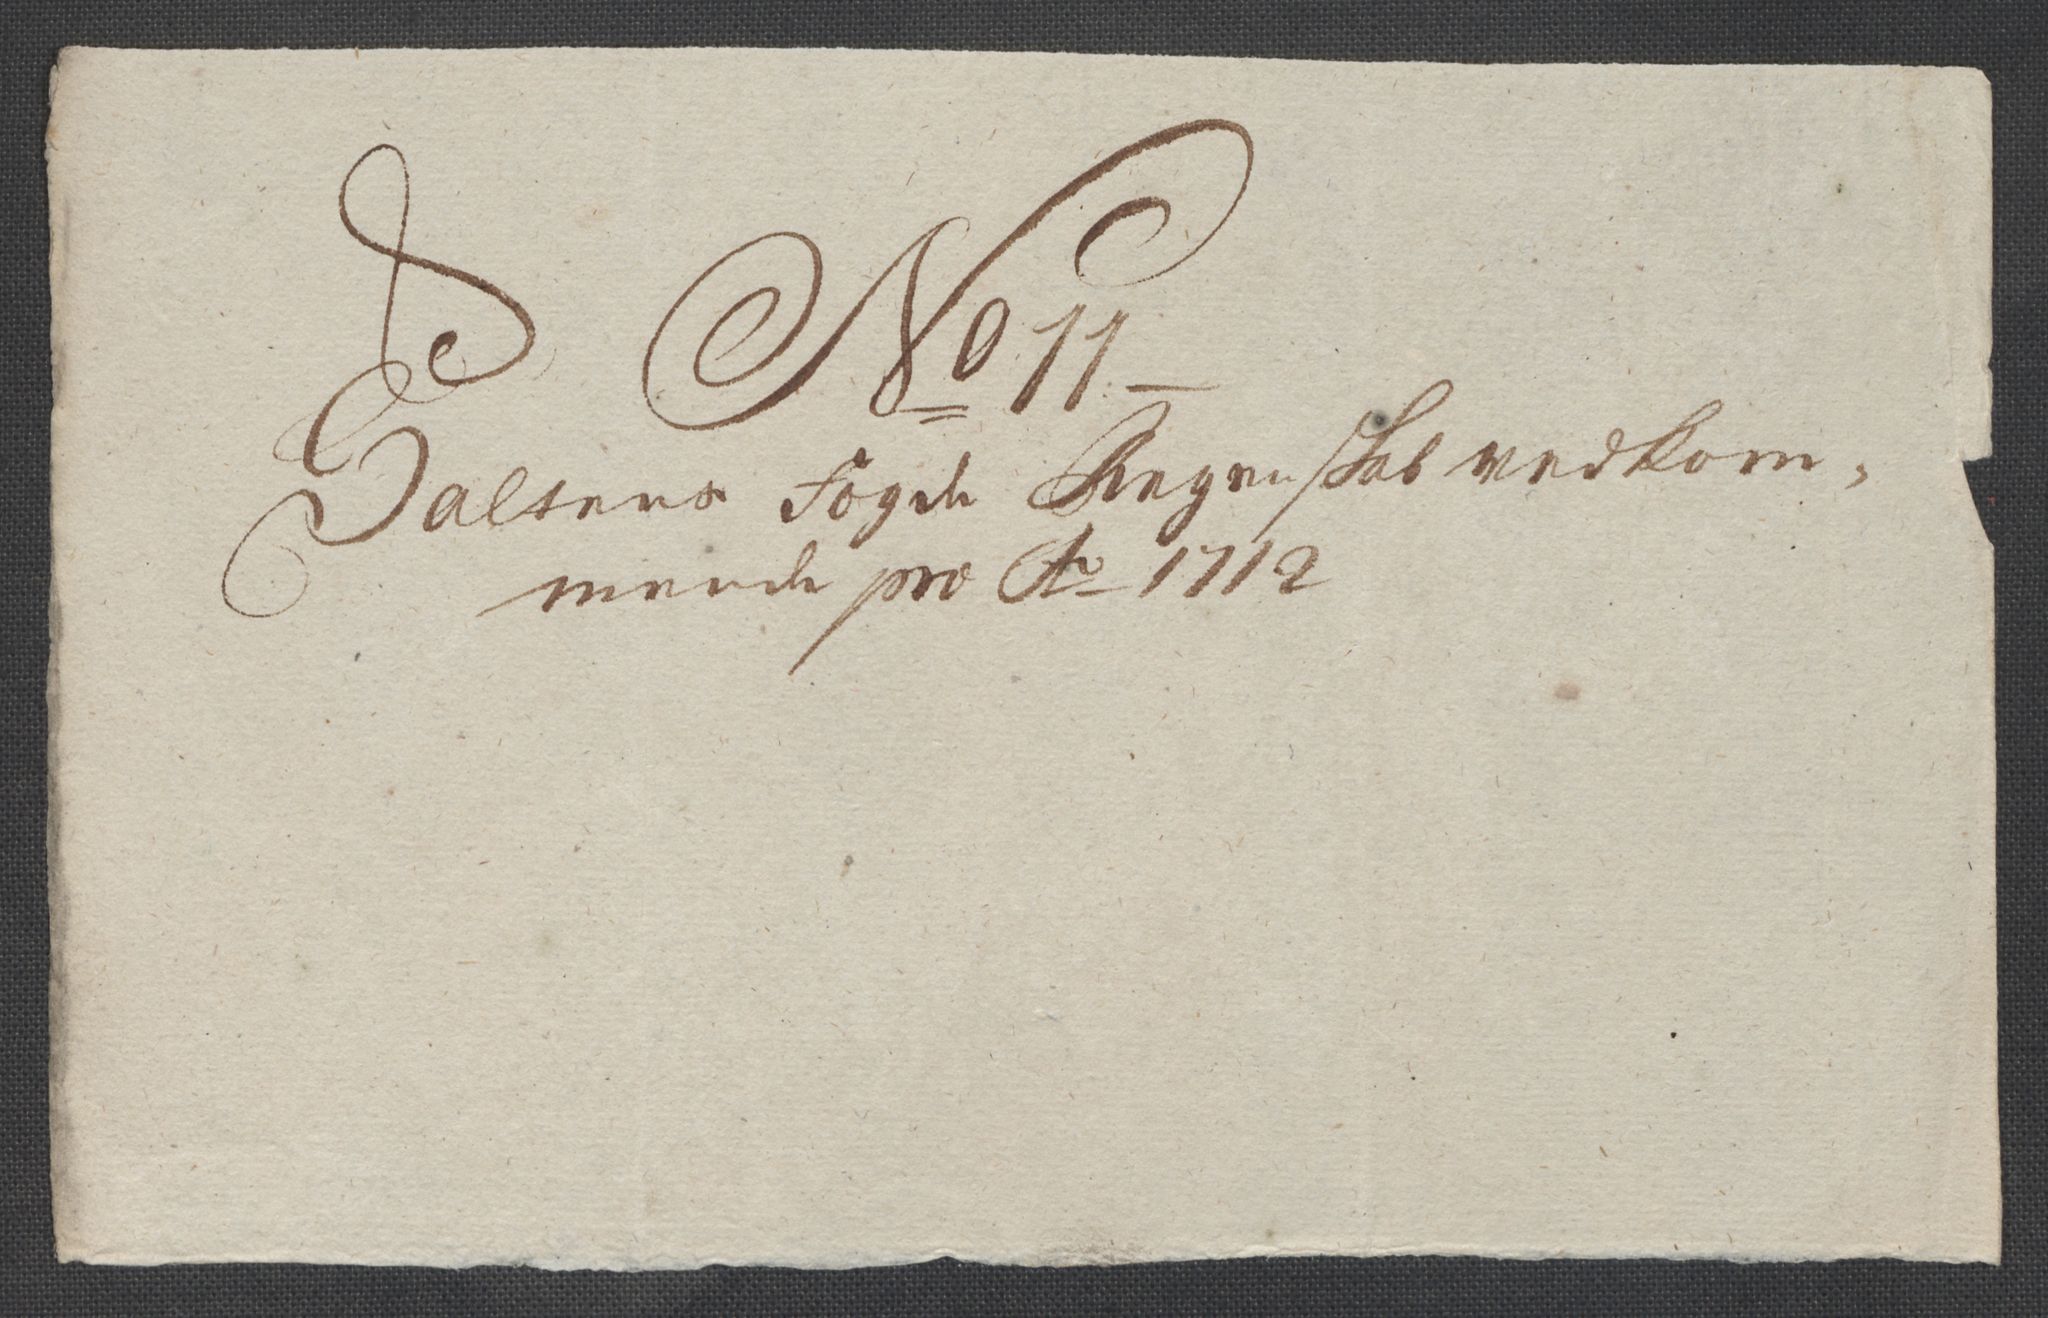 No 11
Saltens Fogde Regenskab vedkom,
mende pro Ao 1712